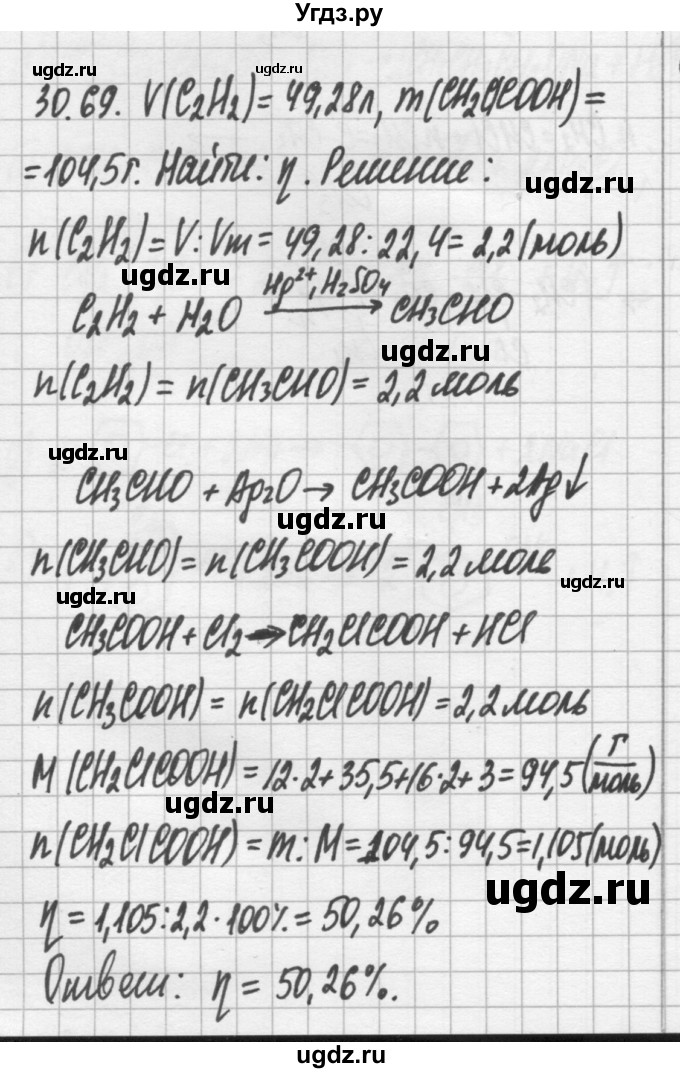 Угдз.ру
ugdz.ru ugdz.ru
30.69. V(C₂H₂)= 49,28л, m(CH₂ClCOOH)=
=104,5г. Найти: η. Решение:
ugdz.ru
n(C₂H₂)= V:Vm = 49,28:22,4= 2,2(моль)
ugdz.ru
C₂H₂ + H₂O Hg²⁺, H₂SO₄ → CH₃CHO
ugdz.ru
n(C₂H₂) = n(CH₃CHO)= 2,2 моль
ugdz.ru
CH₃CHO + Ag₂O → CH₃COOH + 2Ag↓
ugdz.ru
n(CH₃CHO)= n(CH₃COOH)= 2,2 моль
ugdz.ru ugdz.ru
CH₃COOH + Cl₂ → CH₂ClCOOH + HCl
n(CH₃COOH) = n(CH₂ClCOOH)= 2,2 моль
M(CH₂ClCOOH)=12·2+35,5+16·2+3=94,5(г/моль)
ugdz.ru
n(CH₂ClCOOH)=m:M=104,5:94,5=1,105(моль)
ugdz.ru
η = 1,105:2,2·100%= 50,26%
Ответ: η = 50,26%.
ugdz.ru